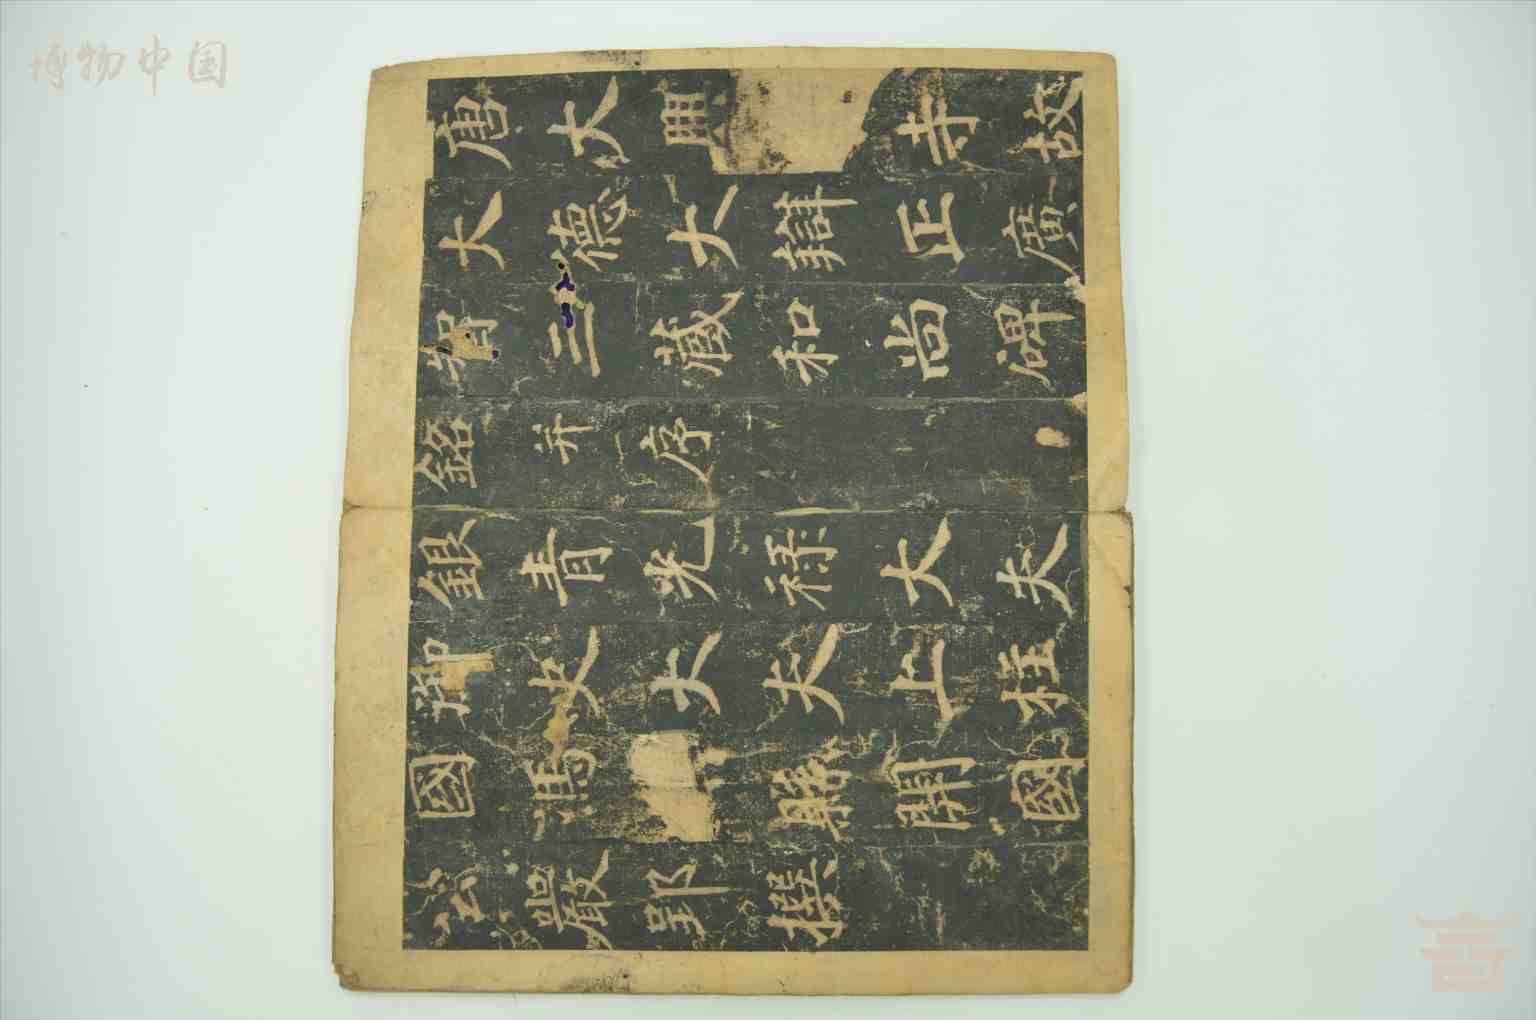 博物中国
唐大興寺故
大德大辯正廣
智三藏和尚碑
銘并序
銀青光祿大夫
御史大夫上柱
國馮縣開國
公嚴郢撰